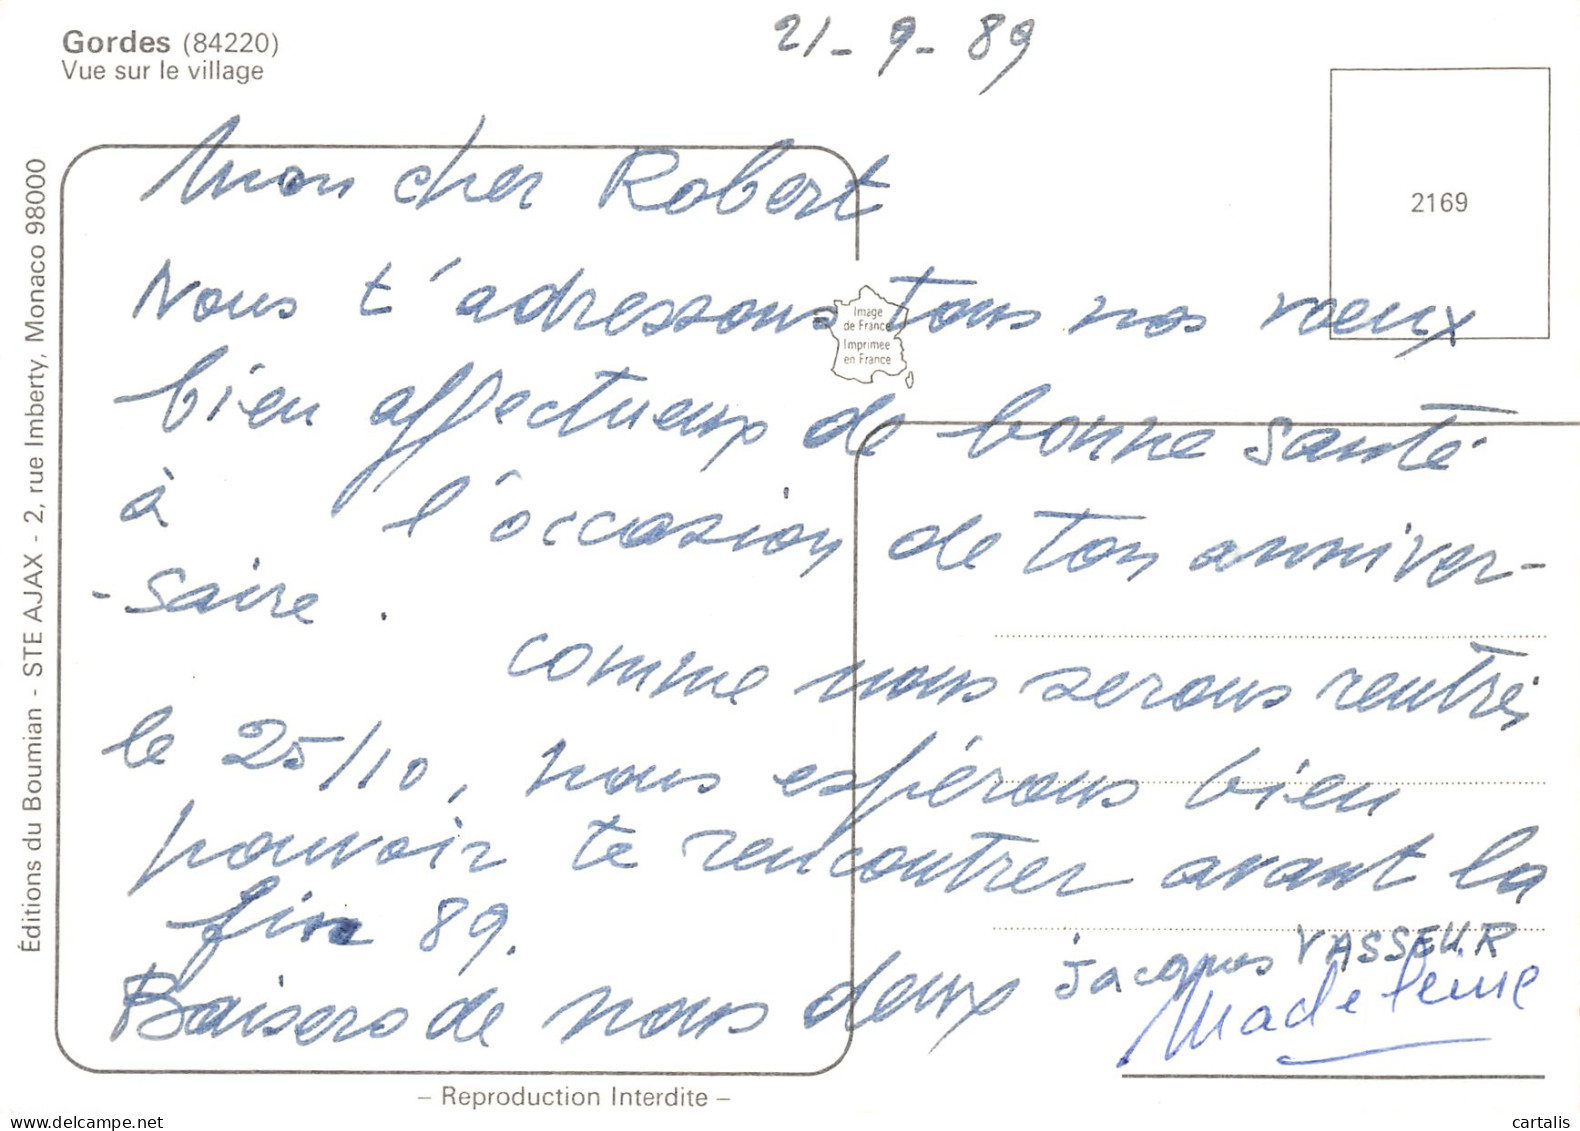 Gordes (84220)
Vue sur le village
21-9-89
2169
Éditions du Boumian - STE AJAX - 2, rue Imberty, Monaco 98000
Image
de France
Imprimée
en France
Mon cher Robert
Nous t'adressons tous nos voeux
bien affectueux de bonne santé
à l'occasion de ton anniver-
-saire.
comme nous serons rentrés
le 25/10, nous espérons bien
pouvoir te rencontrer avant la
fin 89.
Baisers de nous deux Jacques VASSEUR
Madeleine
– Reproduction Interdite –
cartalis